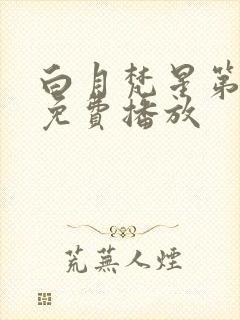 白月梵星第
免費播放
荒蕪人煙